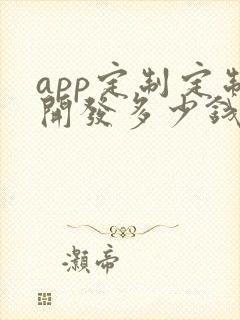 app定制定制
開發多少錢
灝帝